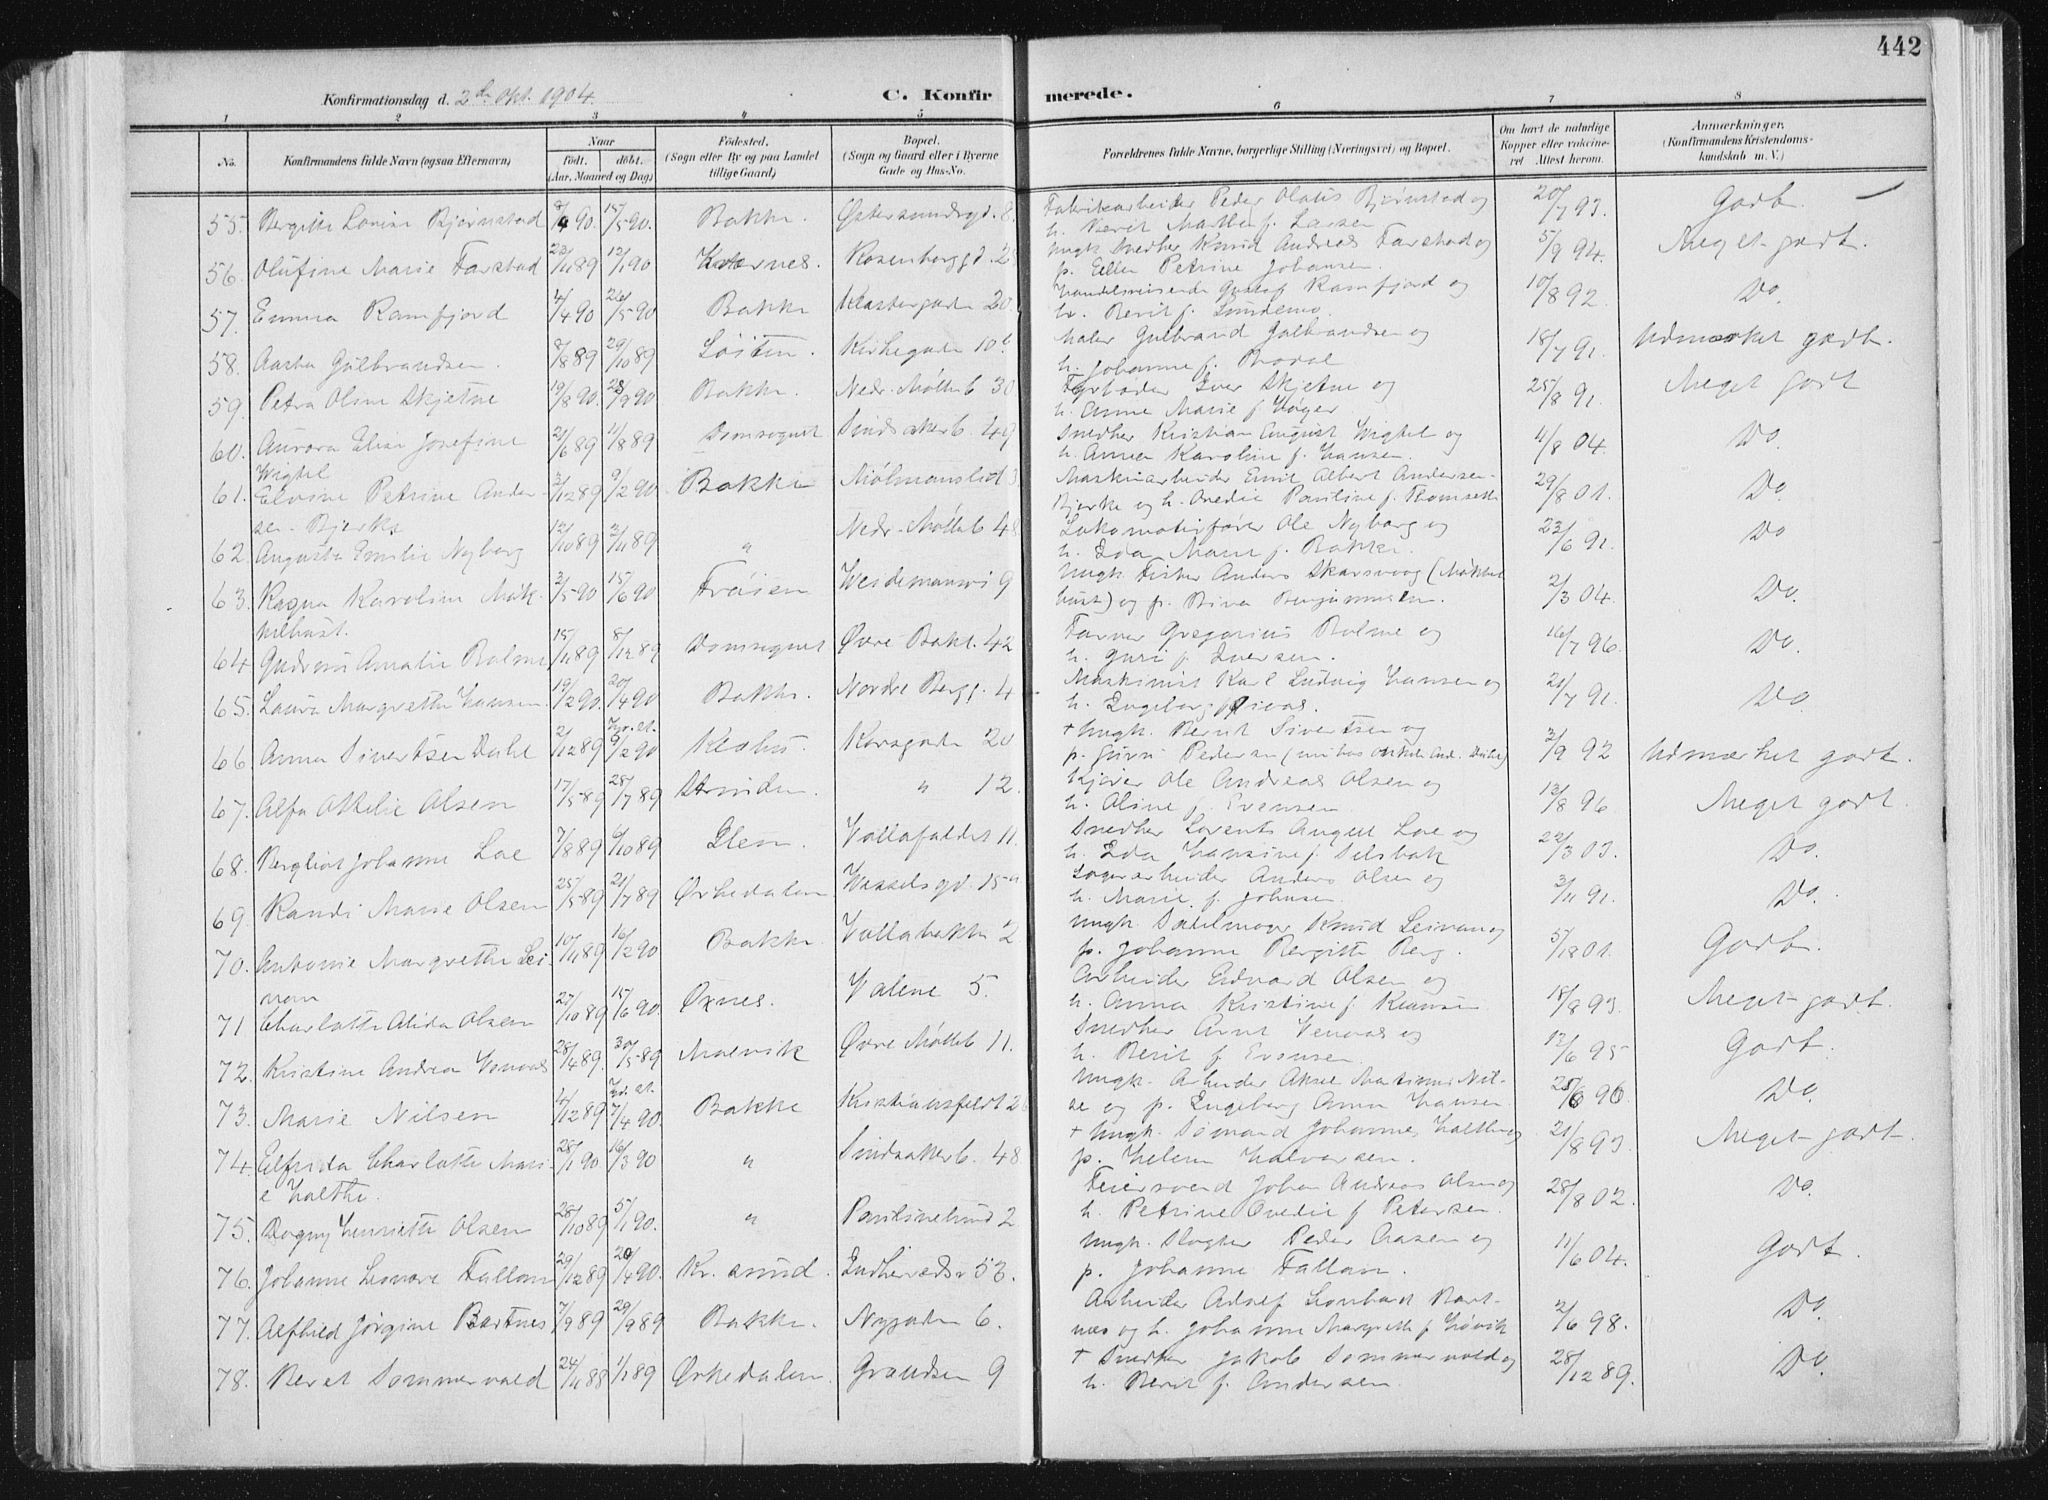 442
Konfirmationsdag d. 2den Okt. 1904.
C. Konfirmerede.
1 2 3 4 5 6 7 8
No. Konfirmandens fulde Navn (ogsaa Efternavn) Naar født. (Aar, Maaned og Dag) døbt. Fødested. (Sogn eller By og paa Landet tillige Gaard) Bopæl. (Sogn og Gaard eller i Byerne Gade og Hus-No. Forældrenes fulde Navne, borgerlige Stilling (Næringsvei) og Bopæl. Om havt de naturlige Kopper eller vaccineret Attest herom. Anmærkninger. (Konfirmandens Kristendomskundskab m. V.)
55. Bergitte Lovise Bjørnstad 90. 15/5 90. Bakke. Østersundsgd. 8. Fabrikarbeider Peder Olaus Bjørnstad og 20/7 93. Godt.
h. Berit Marthe f. Larsen
56. Olufine Marie Farstad 23/11 89 12/1 90 Rosenborggd. 2 Ungk. Snedker Knud Andreas Farstad og 5/9 94. Meget godt.
p. Ellen Petrine Johansen.
57. Emma Ramfjord 4/4 90 26/5 90 Bakke Klostergaden 20 Handelsreisende Gustaf Ramfjord og 10/8 92 Do.
h. Berit f. Lundemo.
58. Aasta Gulbrandsen. 8/8 89 29/10 89 Løiten. Kirkegaden 10 b Maler Gulbrand Gulbrandsen og 18/7 91. Udmærket godt.
h. Johanne f.
59. Petra Olsen Skjetne 19/8 90. 28/9 90 Bakke. Nedr. Mølleb 30 Iver Skjetne og 25/8 91. Meget godt
h. Anne Marie f. Høyer.
60. Aurora Elise Josefine 21/6 89 11/8 89 Domsognet Sindsakerb. 49 Snedker Kristian August Wigtel og 4/8 04. Do.
Wigtel h. Anna Karoline f. Hansen.
61. Petrine Ander- 3/12 89 9/2 90. Bakke Mølmanslid 3 Maskinarbeider Emil Albert Andersen- 29/8 01. Do.
sen-Bjerke Bjerke og h. Ovedie Pauline f.
62 Augusta Emilie Nyborg 12/10 89 3/11 89 " Nedr. Mølleb 48 Lokomotivfører Ole Nyborg og 23/6 91. Do
h. Ida Marie f. Bakken.
63. Ragna Karoline Mak- 3/5 90 15/6 90 Frøien Weidemansvei 9 Ungk. Fisker Anders Skarsvaag (Makkel- 2/3 04. Do.
kelhust. hust) og p. Benjaminsen.
64. Gudrun Amalie Bolme 15/11 89 8/12 89 Domsognet Øvre Bakl. 42 Farver Gregorius Bolme og 16/7 96. Do.
h. Guri f. Iversen.
65. Laura Margrethe Hansen 19/2 90. 20/4 90 Bakke. Nordre Bergg. 4 Maskinist Karl Ludvig Hansen og 21/7 91. Do.
h. Ingeborg f.
66. Anna Sivertsen Dahl 2/12 89 9/2 90 Korsgaden 20 + Ungk. Bernt Sivertsen og 3/9 92 Udmærket godt.
p. Guru Pedersen
67. Alfa Othelie Olsen 17/5 89 28/7 89 Strinden. " 12. Kjører Ole Andreas Olsen og 13/8 96 Meget godt.
h. Oline f. Svensen
68. Bergliot Johanne Loe 7/8 89 6/10 89 Vollafaldet 11. Snedker Lorents August Loe og 22/3 03. Do.
h. Ida Hansine f. Selsbak
69. Randi Marie Olsen 25/5 89 21/7 89 Orkedalen Wesselsgd. 15 a Sagarbeider Anders Olsen og 3/11 91. Do.
h. Marie f. Johnsen.
70. Antonie Margrethe Lei- 10/11 89 16/2 90 Bakke. Vollabakken 2 Ungk. Sadelmager Knud Leinan og 01. Godt.
nan p. Johanne Bergitte Berg.
71 Charlotte Alida Olsen 27/10 89 15/6 90. Øxnes. Volene 5. Arbeider Edvard Olsen og 18/8 93. Meget godt.
h. Anna Kristine f.
72. Kristine Andrea Venaas 28/4 89. 30/5 89 Malvik Øvre Mølleb 11. Snedker Arnt Venaas og 12/6 95 Godt.
h. Berit f. Evensen.
73. Marie Nilsen 12 89 7/4 90. Bakke Kristiansfeldt 2 Ungk. Arbeider Aksel Martinus Nil- 25/6 90 Do.
se og p. Ingeborg Anna Hansen
74. Elfrida Charlotte Mari- 28/1 90 16/3 90 " Sindsakerb. 48 + Ungk. Sømand Johannes Halthe og 21/8 93 Meget godt.
e Halthe. p. Helene Halvorsen.
75. Dagny Henriette Olsen 28/10 89 5/1 90. " Paulinelund 2 Feiersvend Johan Andreas Olsen og 28/8 02. Do.
h. Petrine Ovedie f Petersen.
76. Johanne Leonore Fallan 29/12 89 20/4 90. Kr. sund. Indherredsv 53. Ungk. Slagter Peder Aasen og 11/6 04. Godt.
p. Johanne Fallan.
77. Alfhild Jørgine Bartnes 7/9 89 29/9 89 Bakke. Nygaden 6. Arbeider Adolf Leonhard Bart- 2/6 98. Do.
nes og h. Johanne Margrethe f. Høvik
78. Beret Sommervold 24/11 88 1/1 89 Orkedalen. Grændsen 9 + Snedker Jakob Sommervold og 28/12 89. Do.
h. Berit f. Andersen.